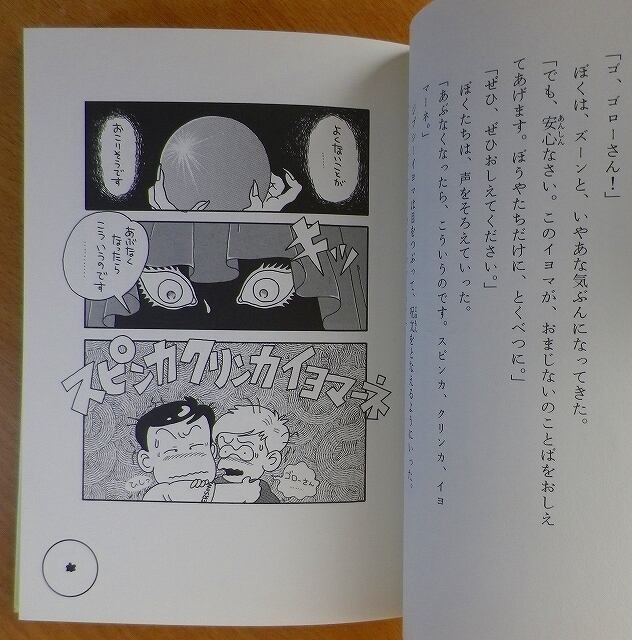 「ゴ、ゴローさん!」
ぼくは、ズーンと、いやあな気ぶんになってきた。
「でも、安心なさい。このイヨマが、おまじないのことばをおしえ
あんしん
てあげます。ぼうやたちだけに、とくべつに。」
「ぜひ、ぜひおしえてください。」
ぼくたちは、声をそろえていった。
「あぶなくなったら、こういうのです。スピンカ、クリンカ、イヨ
マーネ。」
イヨマは目をつぶって、呪文をとなえるようにいった。
よくないことが
………
おこりそうです
キッ
あぶなく
なったら
こういうのです
………
スピンカクリンカイヨマーネ
ゴローさん
……
ひしっ